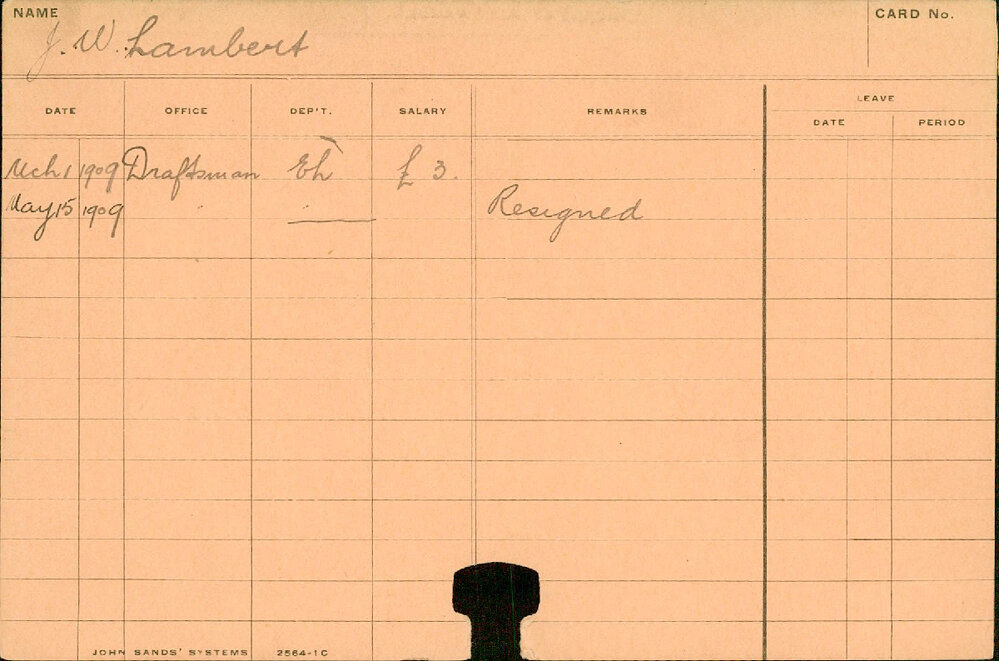 NAME CARD No.
J. W. Lambert
LEAVE
DATE OFFICE DEP'T. SALARY REMARKS DATE PERIOD
Mch 1 1909 Draftsman Eh £ 3.
May 15 1909 Resigned
JOHN SANDS' SYSTEMS 2564-1C